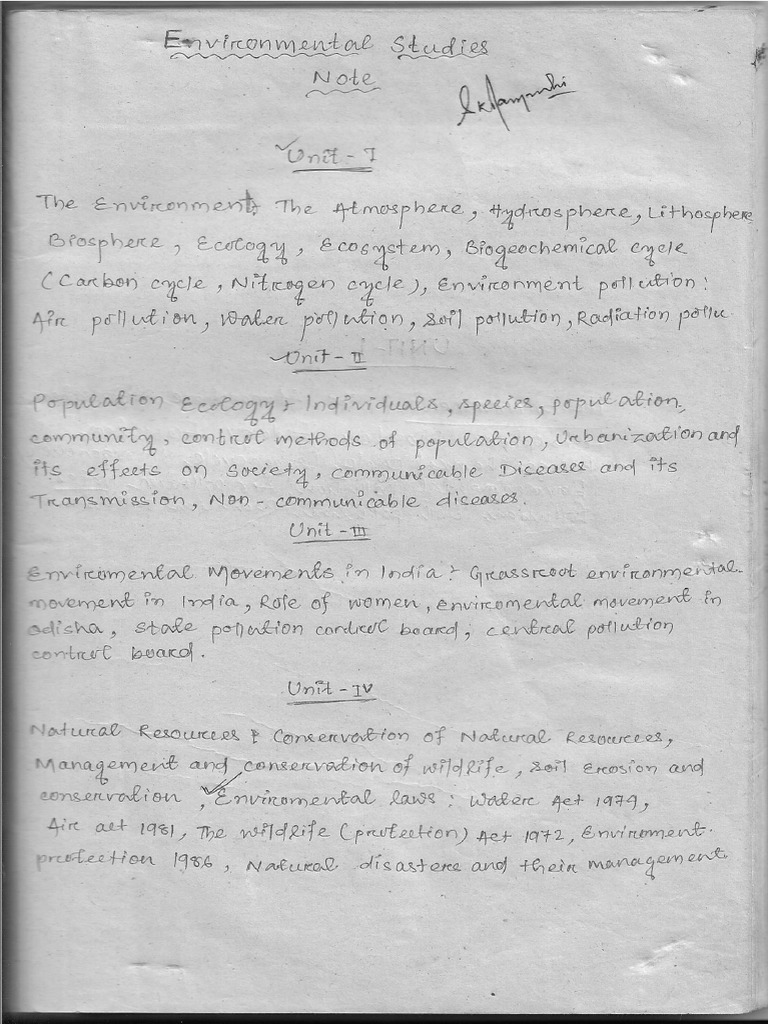 Environmental Studies
Note
Unit - I
The Environment:- The Atmosphere, Hydrosphere, Lithosphere
Biosphere, Ecology, Ecosystem, Biogeochemical cycle
(Carbon cycle, Nitrogen cycle), Environment pollution:
Air pollution, Water pollution, Soil pollution, Radiation pollu
Unit - II
Population Ecology:- Individuals, species, population,
community, control methods of population, Urbanization and
its effects on Society, communicable Diseases and its
Transmission, Non-communicable diseases.
Unit - III
Enviromental Movements in India:- Grassroot environmental
movement in India, Role of women, enviromental movement in
odisha, State pollution control board, central pollution
control board.
Unit - IV
Natural Resources:- Conservation of Natural Resources,
Management and conservation of wildlife, soil Erosion and
conservation, Enviromental laws: Water Act 1974,
Air act 1981, The wildlife (protection) Act 1972, Enviroment
protection 1986, Natural disasters and their management.